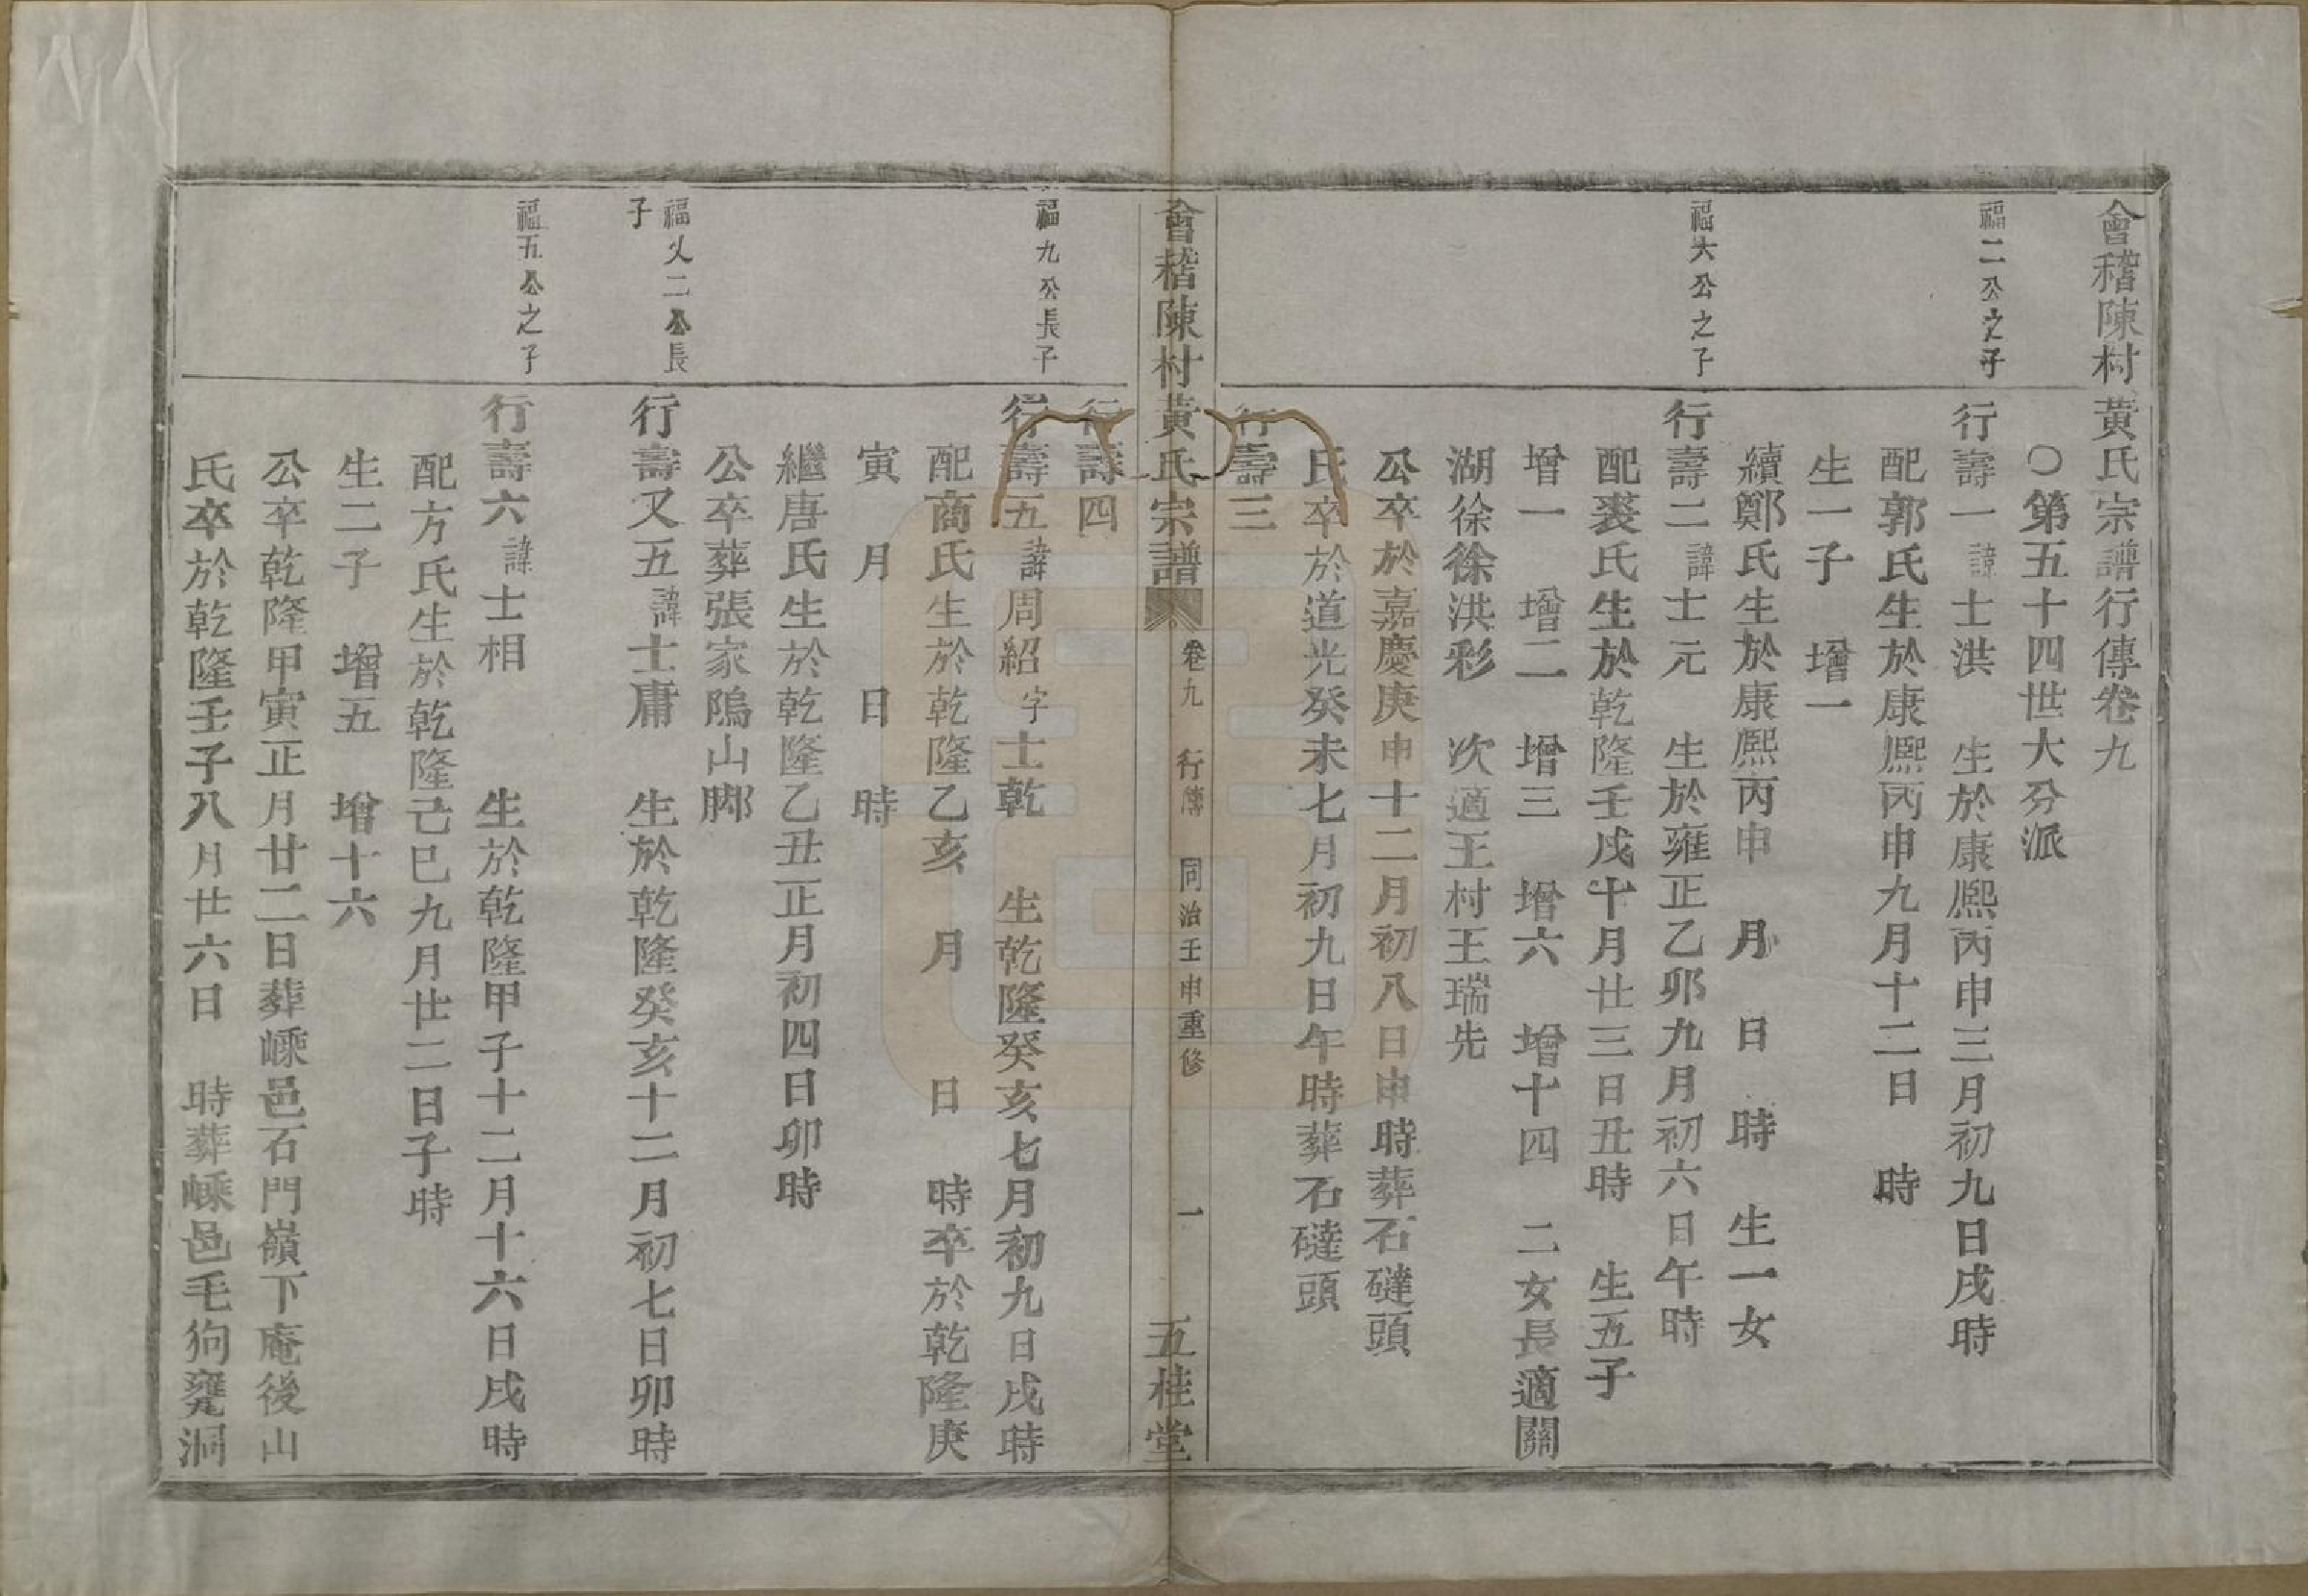 會稽陳村黃氏宗譜行傳卷九
○第五十四世大分派
福二公之子
行壽一諱士洪 生於康熙丙申三月初九日戌時
配郭氏生於康熙丙申九月十二日 時
生一子 增一
續鄭氏生於康熙丙申 月 日 時 生一女
福大公之子
行壽二諱士元 生於雍正乙卯九月初六日午時
配裘氏生於乾隆壬戌十月廿三日丑時 生五子
增一 增二 增三 增六 增十四 二女長適關
湖徐徐洪彩 次適王村王瑞先
公卒於嘉慶庚申十二月初八日申時葬石磋頭
氏卒於道光癸未七月初九日午時葬石磋頭
行壽三
會稽陳村黃氏宗譜 卷九 行傳 同治壬申重修 一 五桂堂
行壽四
福九公長子
行壽五諱周紹字士乾 生乾隆癸亥七月初九日戌時
配商氏生於乾隆乙亥 月 日 時卒於乾隆庚
寅 月 日 時
繼唐氏生於乾隆乙丑正月初四日卯時
公卒葬張家隖山脚
福乂二公長
子
行壽又五諱士庸 生於乾隆癸亥十二月初七日卯時
福五公之子
行壽六諱士相 生於乾隆甲子十二月十六日戌時
配方氏生於乾隆己巳九月廿二日子時
生二子 增五 增十六
公卒乾隆甲寅正月廿二日葬嵊邑石門嶺下庵後山
氏卒於乾隆壬子八月廿六日 時葬嵊邑毛狗洞